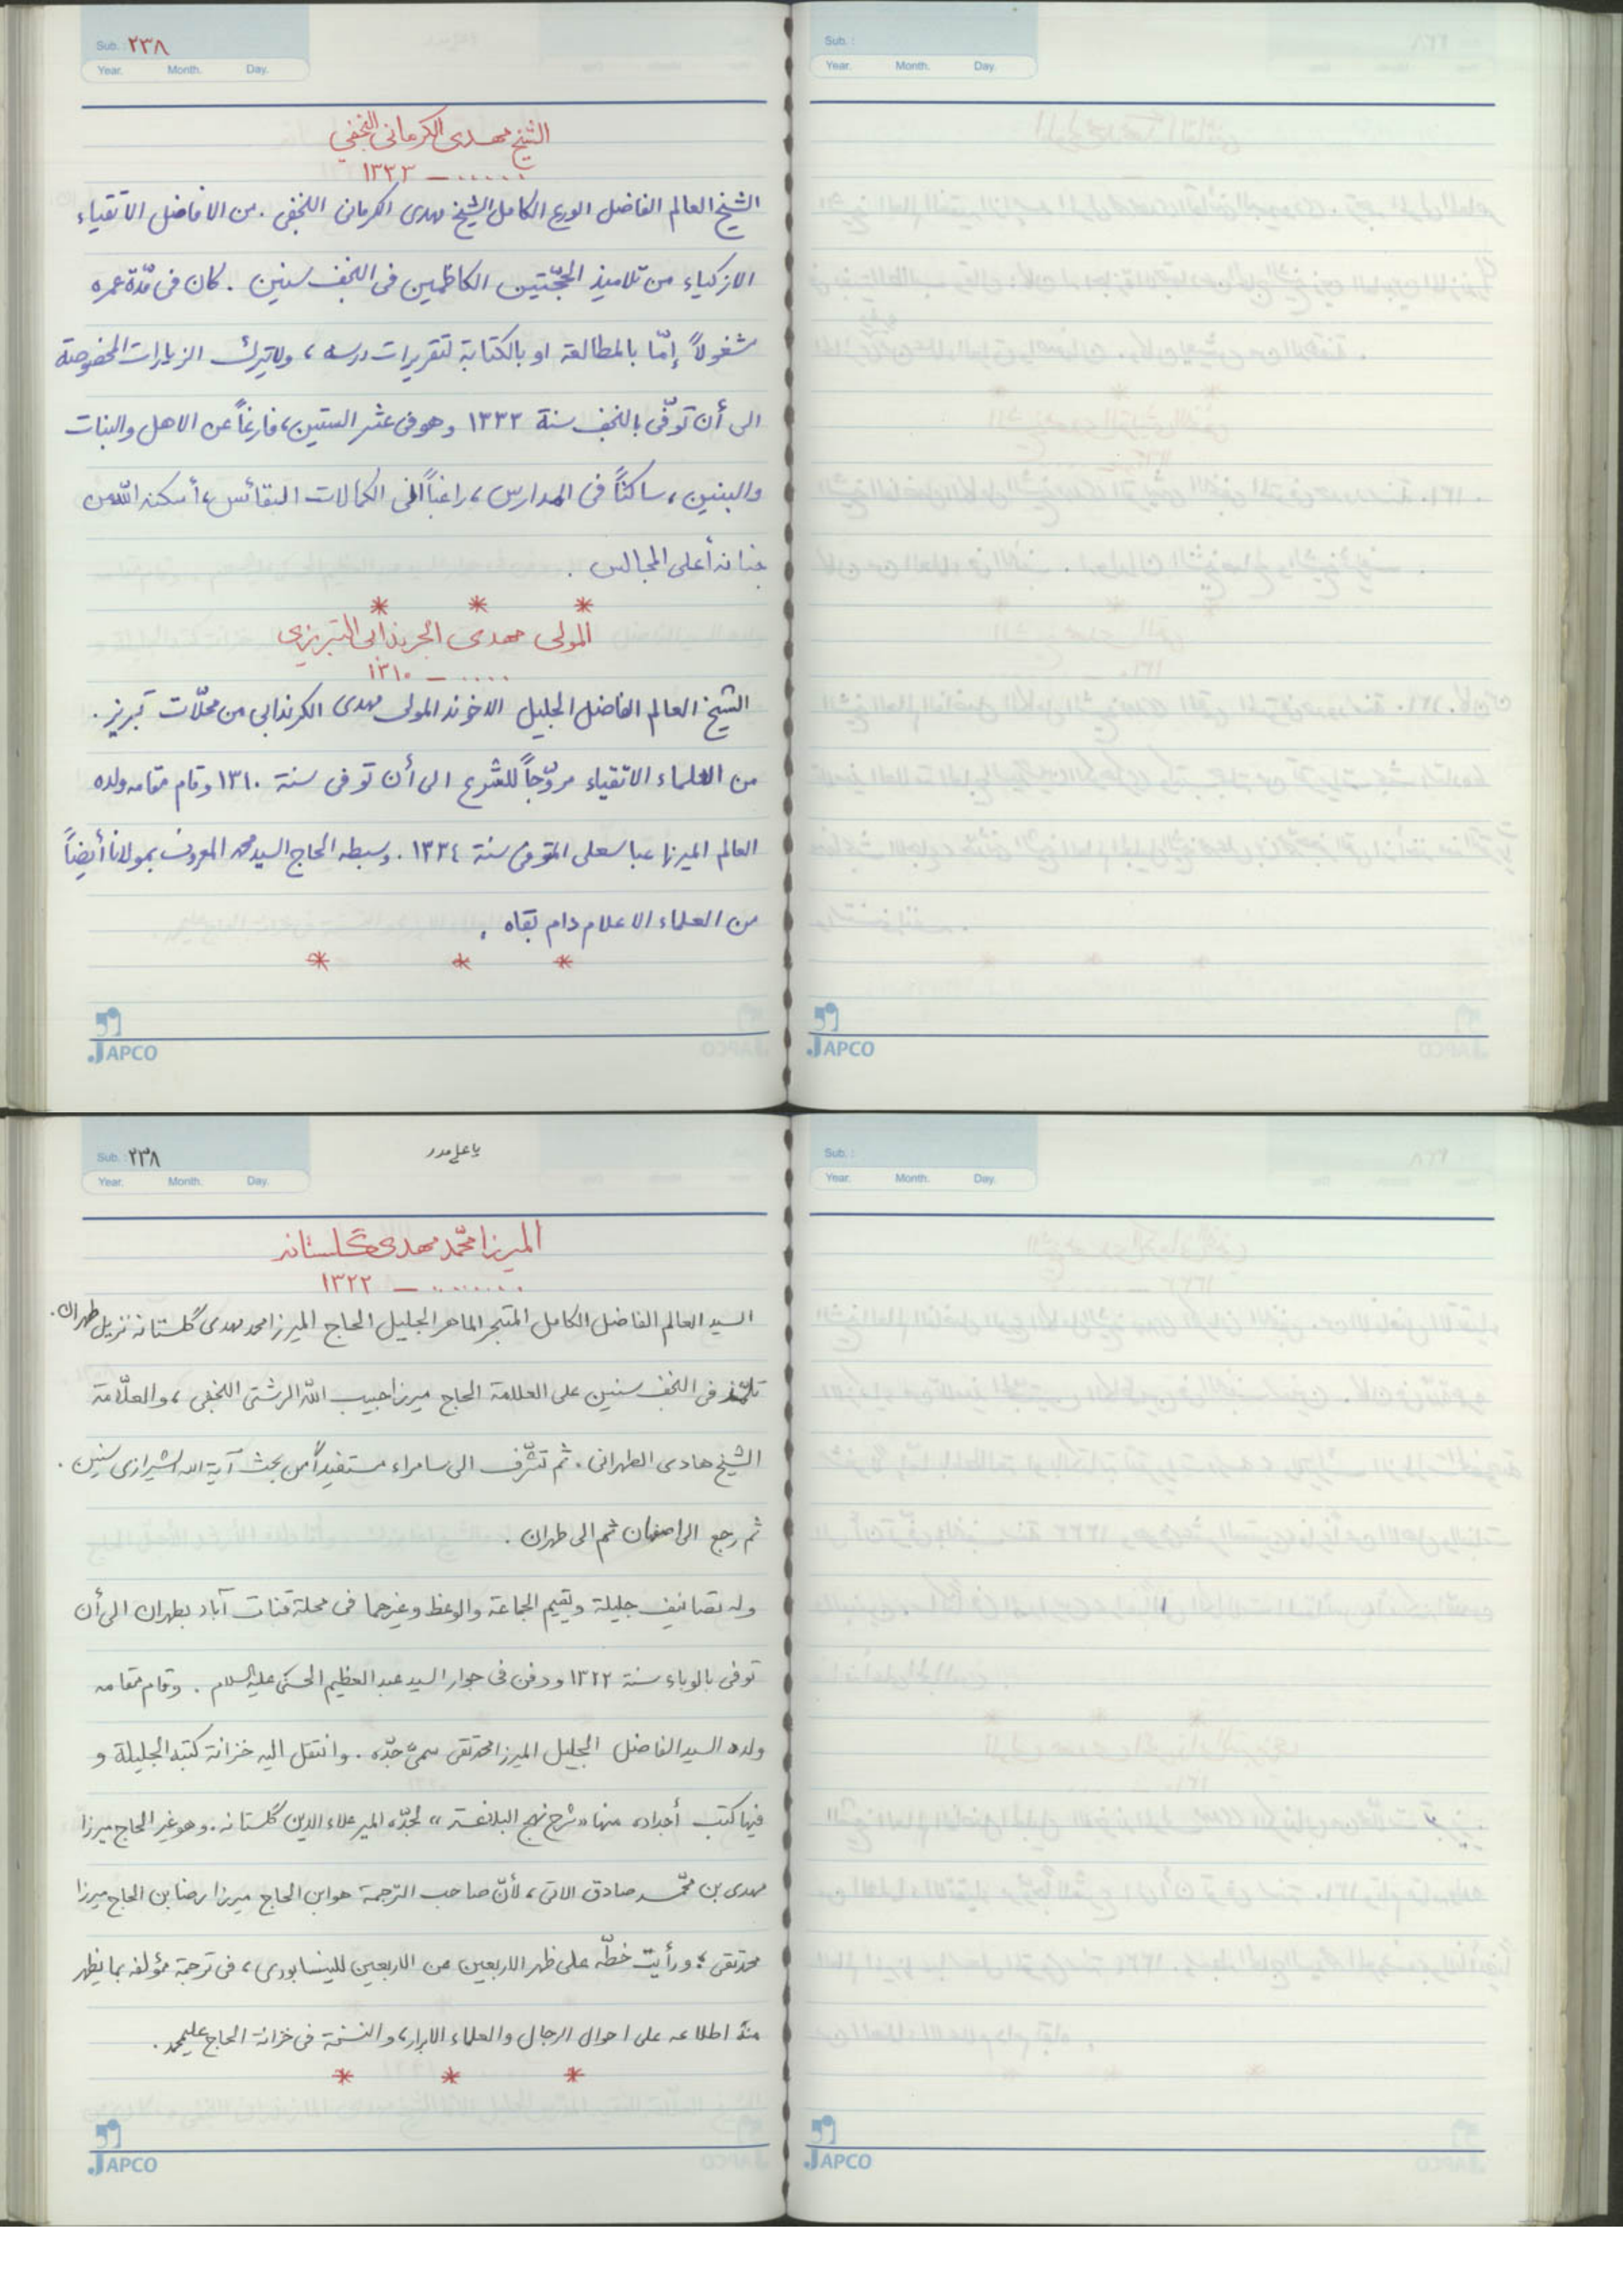 Sub. : ٢٣٨
Year. Month. Day.
الشيخ مهدى الكرمانى النجفي
...... – ١٣٣٣
الشيخ العالم الفاضل الورع الكامل الشيخ مهدى الكرمانى النجفى . من الافاضل الاتقياء
الازكياء من تلاميذ الحجّتين الكاظمين فى النجف سنين . كان فى مدّة عمره
شغولاً إمّا بالمطالعة او بالكتابة لتقريرات درسه ، ولايترك الزيارات المخصوصة
الى أن توفّى بالنجف سنة ١٣٣٣ وهو فى عشر الستين ، فارغاً عن الاهل والبنات
والبنين ، ساكناً فى المدارس ، راغباً الى الكمالات النفائس ، أسكنه الله من
جنانه أعلى المجالس .
* * *
المولى مهدى الجرندابى التبريزى
..... – ١٣١٠
الشيخ العالم الفاضل الجليل الاخوند المولى مهدى الكرندابى من محلّات تبريز .
من العلماء الاتقياء مروّجاً للشرع الى أن توفى سنة ١٣١٠ وقام مقامه ولده
العالم الميرزا عباسعلى المتوفى سنة ١٣٣٤ . وسبطه الحاج السيد محمد المعروف بمولانا أيضاً
من العلماء الاعلام دام بقاه .
* * *
JAPCO
Sub. :
Year. Month. Day.
JAPCO
Sub. : ٢٣٨
ياعلى مدد
Year. Month. Day.
الميرزا محمّد مهدى گلستانه
........ – ١٣٢٢
السيد العالم الفاضل الكامل المتبحر الماهر الجليل الحاج الميرزا محمد مهدى گلستانه نزيل طهران .
تلمّذ فى النجف سنين على العلامة الحاج ميرزا حبيب الله الرشتى النجفى ، والعلّامة
الشيخ هادى الطهرانى . ثم تشرّف الى سامراء مستفيداً من بحث آية الله الشيرازى سنين .
ثم رجع الى اصفهان ثم الى طهران .
وله تصانيف جليلة ويقيم الجماعة والوعظ وغيرهما فى محلة قنات آباد بطهران الى أن
توفى بالوباء سنة ١٣٢٢ ودفن فى جوار السيد عبد العظيم الحسنى عليه السلام . وقام مقامه
ولده السيد الفاضل الجليل الميرزا محمدتقى سمىّ جدّه . وانتقل اليه خزانة كتبه الجليلة و
فيها كتب أجداده منها «شرح نهج البلاغة» لجدّه المير علاء الدين گلستانه . وهو غير الحاج ميرزا
مهدى بن محمّد صادق الاتى ، لأنّ صاحب الترجمة هو ابن الحاج ميرزا رضا بن الحاج ميرزا
محمدتقى ؛ ورأيت خطّه على ظهر الاربعين عن الاربعين للنيسابورى ، فى ترجمة مؤلفه بما يظهر
منه اطلاعه على احوال الرجال والعلماء الابرار ، والنسخة فى خزانة الحاج عليمحمد .
* * *
JAPCO
Sub. :
Year. Month. Day.
JAPCO